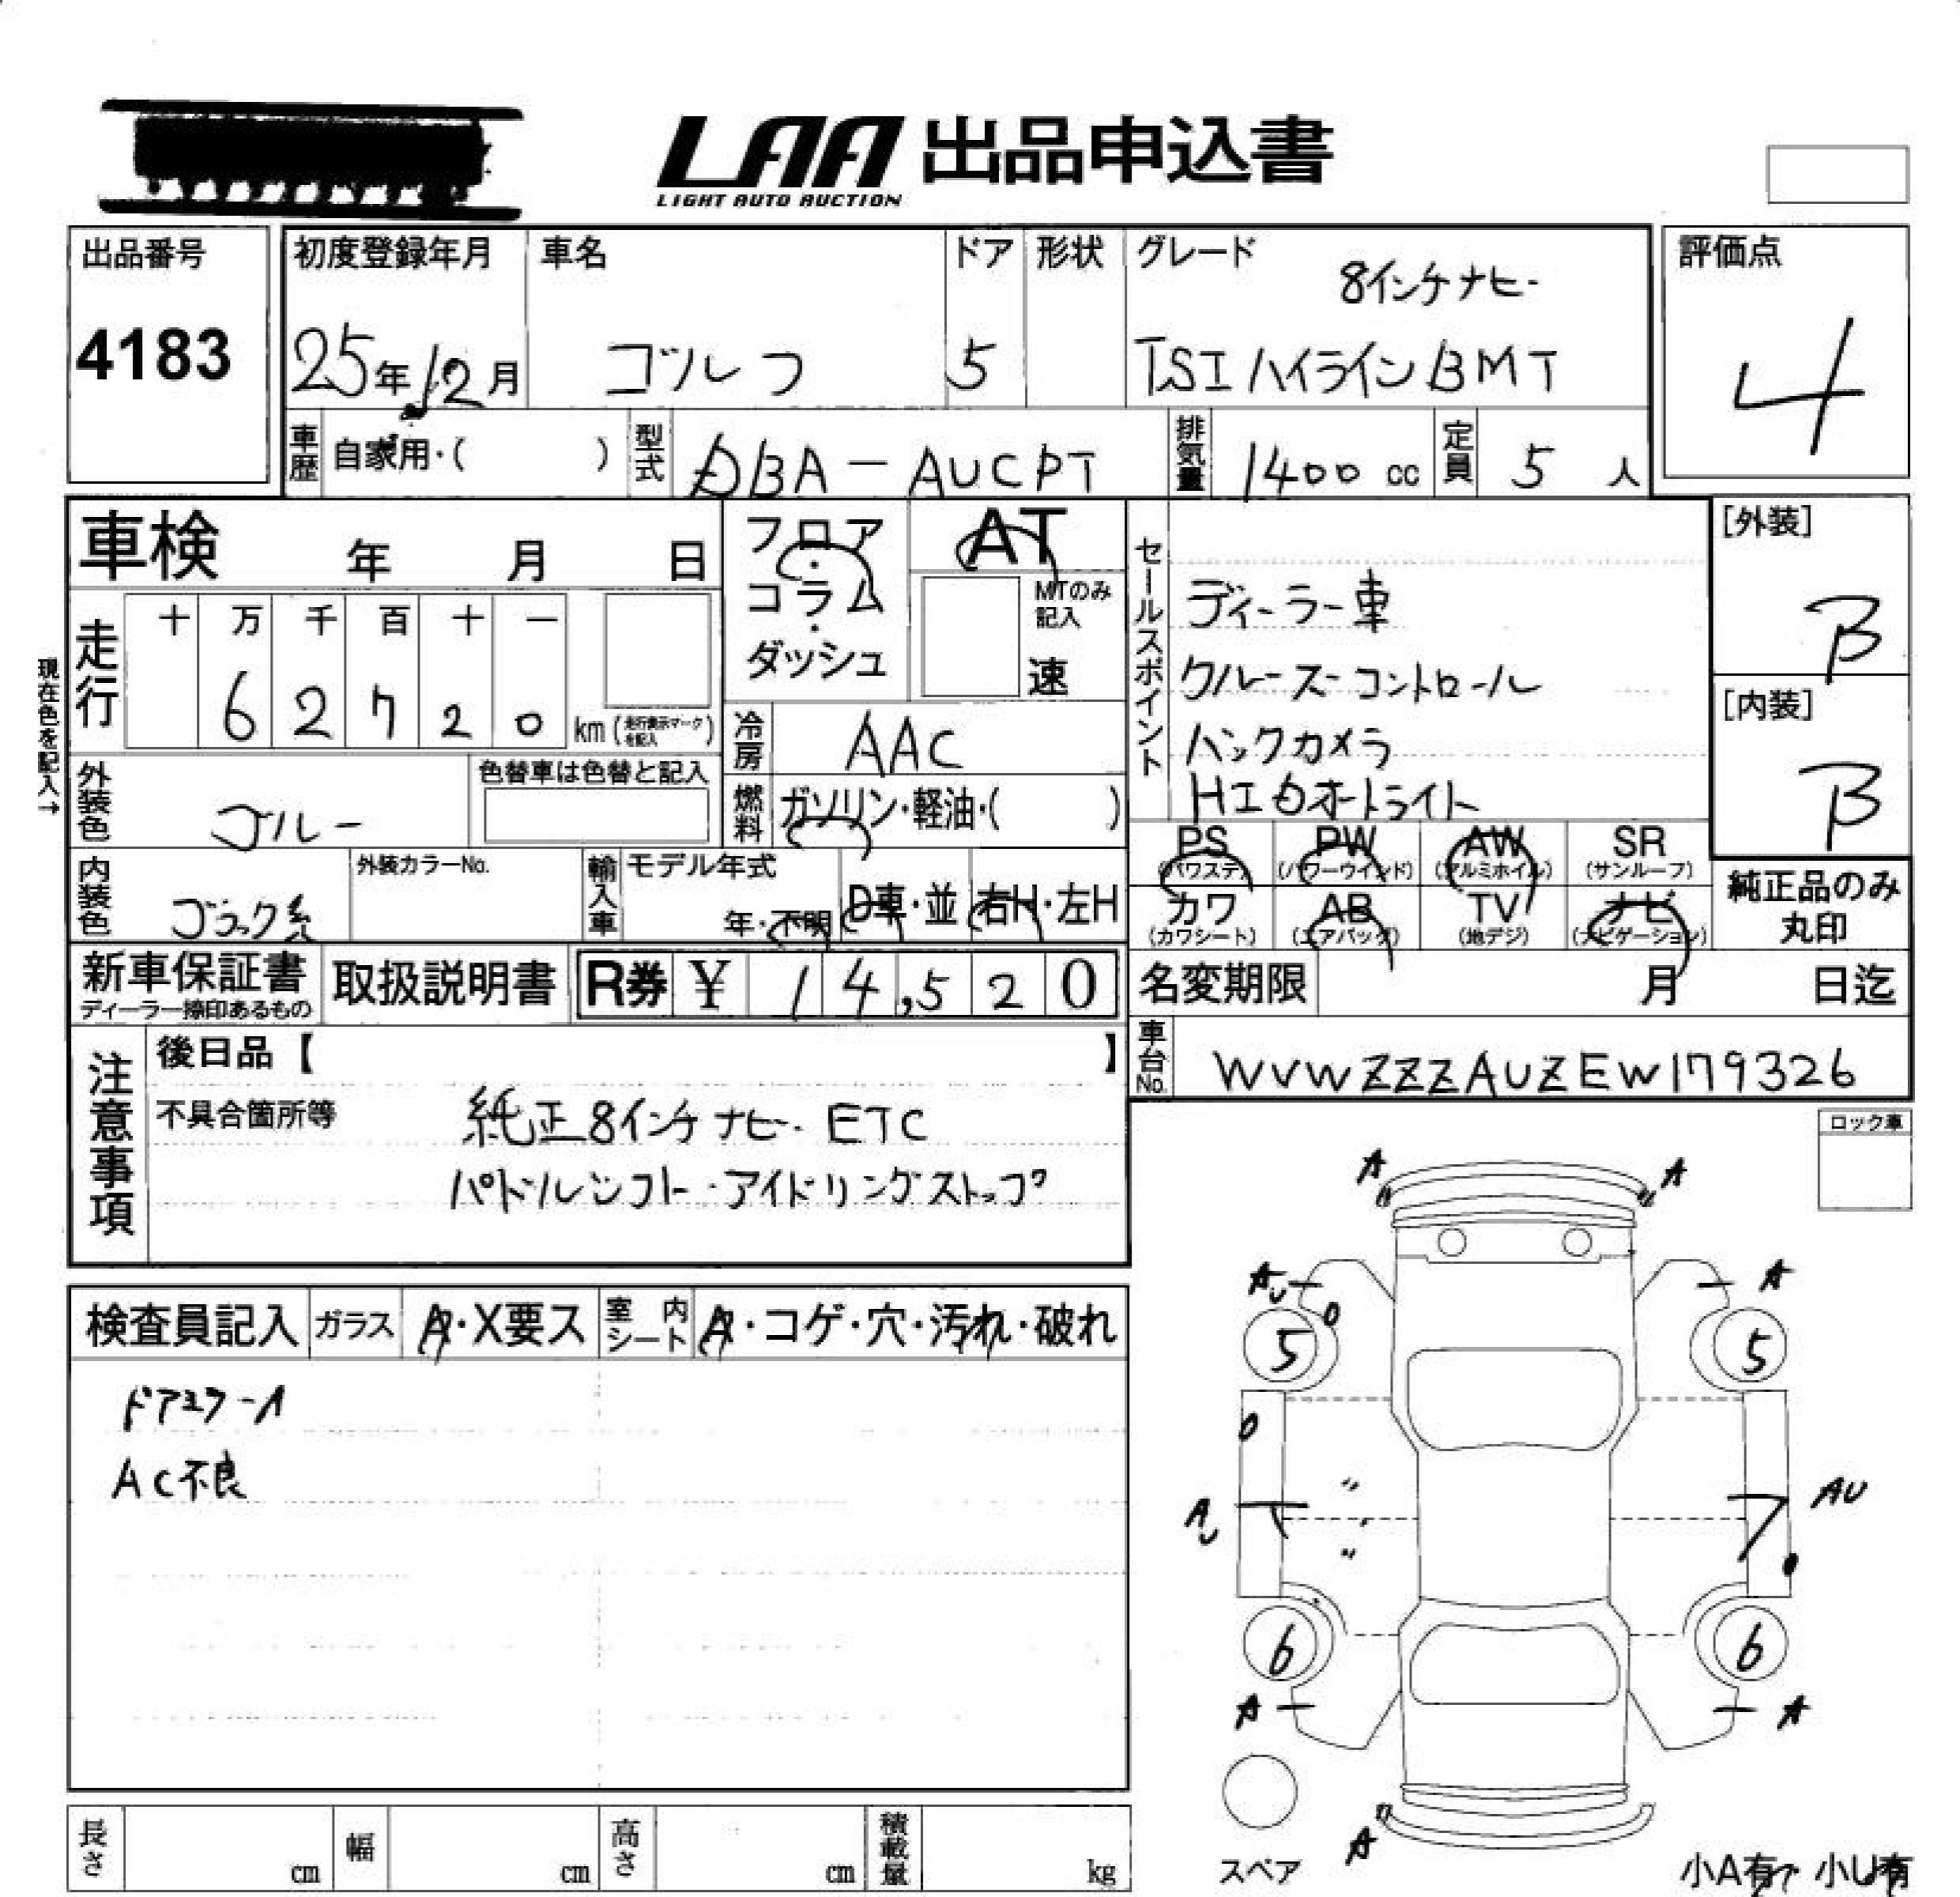 LAA 出品申込書
LIGHT AUTO AUCTION
出品番号
4183
初度登録年月
25年12月
車名
ゴルフ
ドア
5
形状
グレード
8インチナビ
TSIハイラインBMT
評価点
4
車歴
自家用・( )
型式
DBA-AUCPT
排気量
1400 cc
定員
5 人
車検 年 月 日
フロア・コラム・ダッシュ
AT
MTのみ記入
速
セールスポイント
ディーラー車
クルーズコントロール
バックカメラ
HIDオートライト
[外装]
B
[内装]
B
現在色を記入→
走行
十 万 千 百 十 一
6 2 7 2 0 km (走行表示マークを記入)
冷房
AAC
外装色
ブルー
色替車は色替と記入
燃料
ガソリン・軽油・( )
PS (パワステ)
PW (パワーウインド)
AW (アルミホイル)
SR (サンルーフ)
カワ (カワシート)
AB (エアバッグ)
TV (地デジ)
ナビ (ナビゲーション)
純正品のみ丸印
内装色
ブラック系
外装カラーNo.
輸入車
モデル年式
年・不明
D車・並
右H・左H
新車保証書
ディーラー捺印あるもの
取扱説明書
R券 ¥ 14,520
名変期限 月 日迄
車台No.
WVWZZZAUZEW179326
注意事項
後日品【 】
不具合箇所等
純正8インチナビ ETC
パドルシフト・アイドリングストップ
ロック車
検査員記入
ガラス
A・X要ス
室内シート
A・コゲ・穴・汚れ・破れ
ドアミラーA
AC不良
A A
AU A
5 5
AU AU
6 6
A A
A
スペア
小A有 小U有
長さ cm
幅 cm
高さ cm
積載量 kg